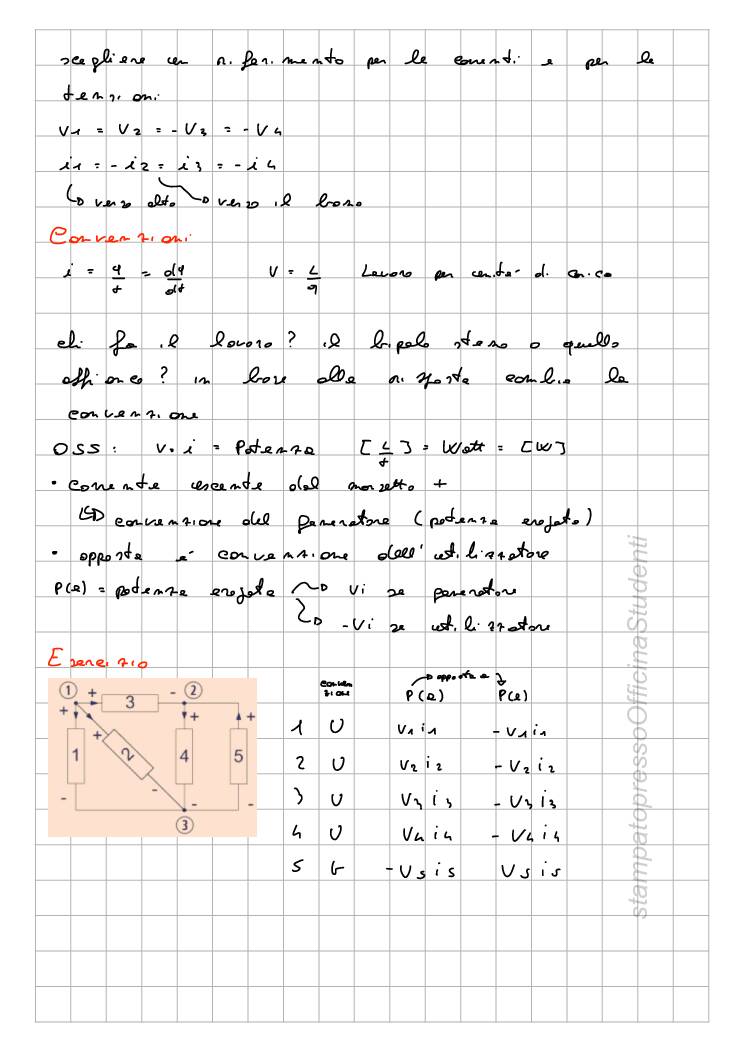 scegliere un riferimento per le correnti e per le
tensioni
V1 = V2 = -V3 = -V4
i1 = -i2 = i3 = -i4
verso alto verso il basso
Convenzioni
i = q/t = dq/dt V = L/q Lavoro per unità di carica
chi fa il lavoro? il bipolo stesso o quello
affianco? in base alla risposta cambia la
convenzione
OSS: V·i = Potenza [L/t] = Watt = [W]
• corrente uscente dal morsetto +
convenzione del generatore (potenza erogata)
• opposta è convenzione dell'utilizzatore
P(e) = potenza erogata Vi se generatore
-Vi se utilizzatore
Esercizio
1 + 3 - 2
+ + + +
1 2 4 5
- - - -
3
conven zione P(a) opposta a P(e)
1 U V1 i1 -V1 i1
2 U V2 i2 -V2 i2
3 U V3 i3 -V3 i3
4 U V4 i4 -V4 i4
5 G -V5 i5 V5 i5
stampatopressoOfficinaStudenti